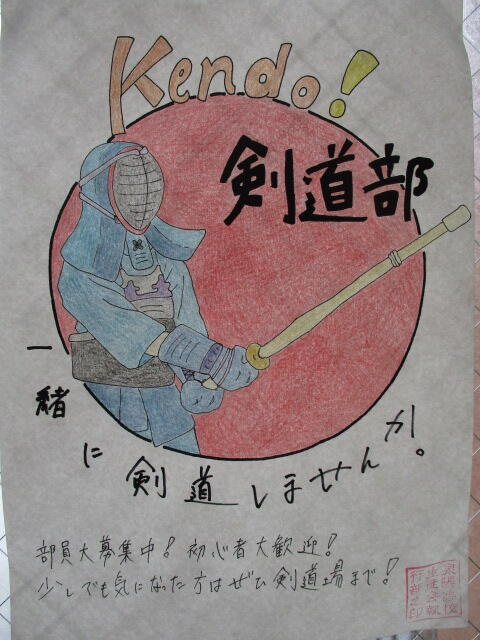 Kendo!
剣道部
一緒に剣道しませんか。
部員大募集中!初心者大歓迎!
少しでも気になった方はぜひ剣道場まで!